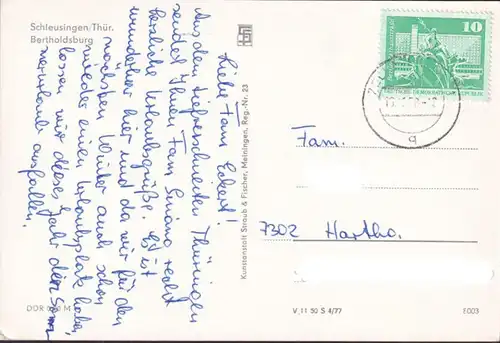 Schleusingen/Thür.
Bertholdsburg
Liebe Fam. Eckert!
Aus den tiefverschneiten Thüringen
sendet Ihnen Fam. recht
herzliche Urlaubsgrüße. Es ist
wunderbar hier und da wir für den
nächsten Winter auch schon
wieder einen Urlaubsplatz haben,
lassen wir dieses Jahr den Som
merurlaub ausfallen.
DDR M
Kunstanstalt Straub & Fischer, Meiningen, Reg.-Nr. 23
10
DEUTSCHE DEMOKRATISCHE REPUBLIK
Fam.
7302 Hartha.
V 11 50 S 4/77
E003